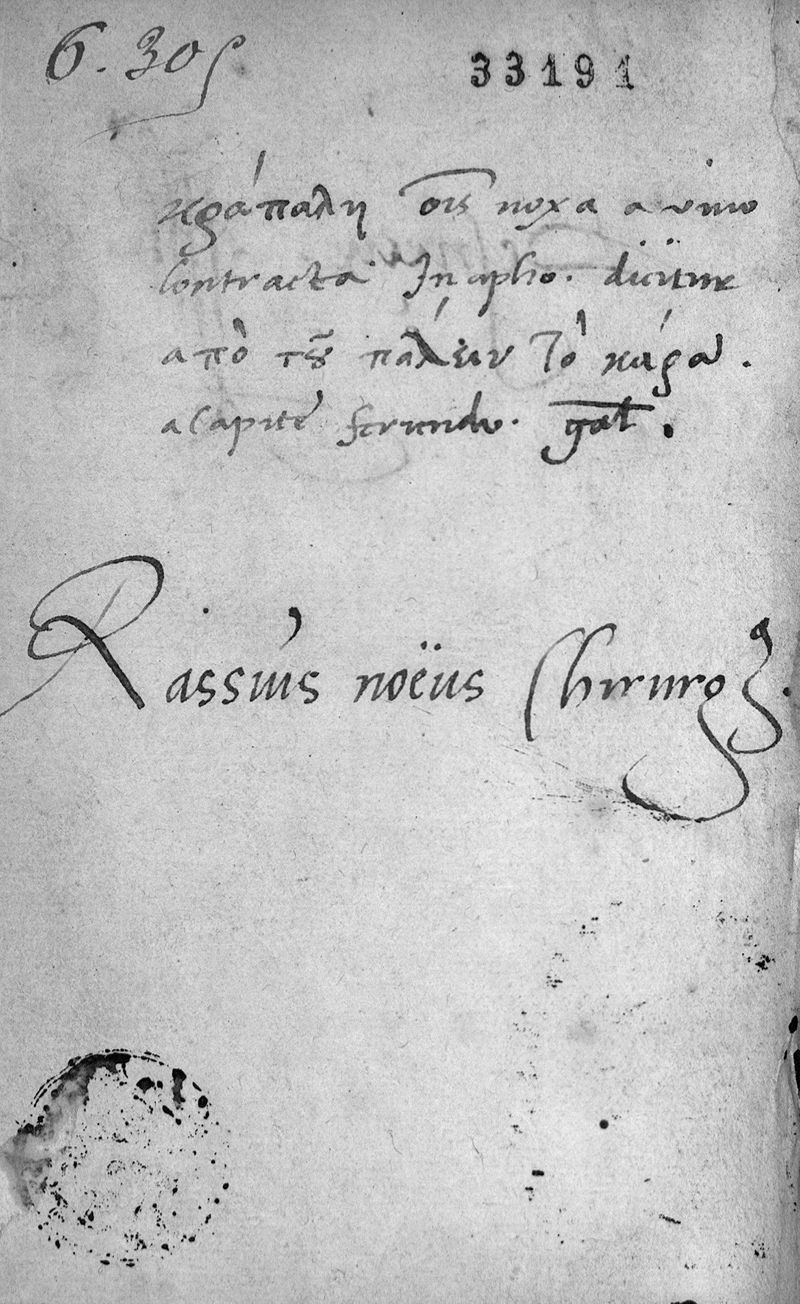 6. 30s
33191
κραπάλη ois noxa a vino
contracta In apho. dicitur
ἀπὸ τοῦ πάλλειν τὸ κάρα.
a capite feriendo. gal.
Rassius noëus Chirurg9.